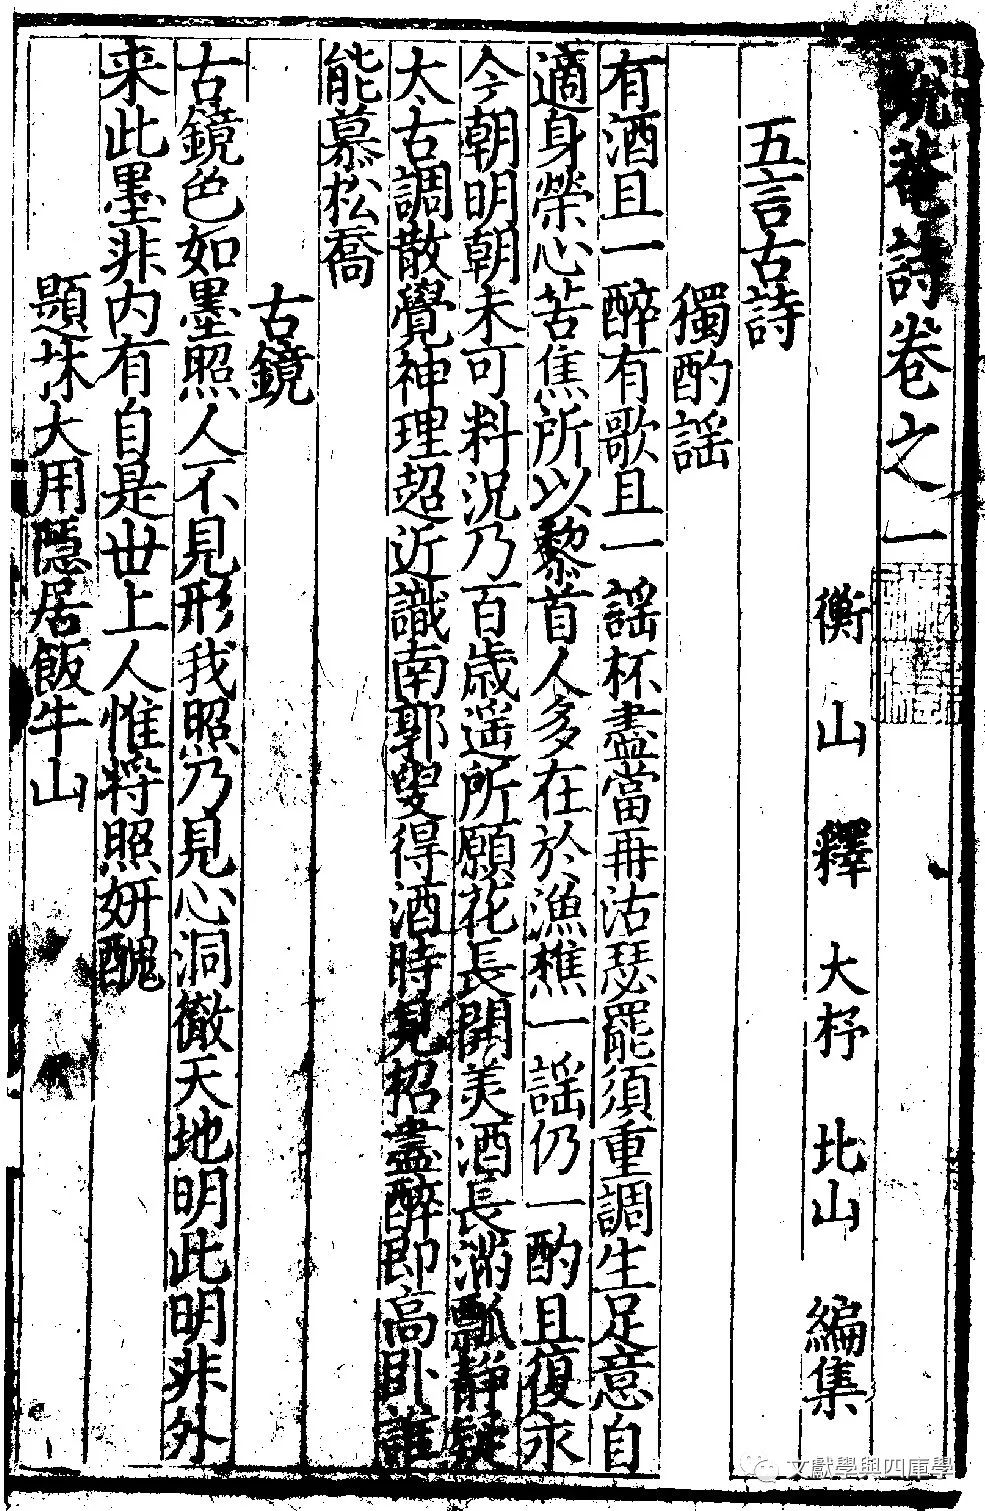 蛻菴詩卷之一
衡山釋大杼北山編集
五言古詩
獨酌謡
有酒且一醉有歌且一謡杯盡當再沽瑟罷須重調生足意自
適身榮心苦焦所以黎首人多在於漁樵一謡仍一酌且復永
今朝明朝未可料况乃百歳遥所願花長開美酒長滿瓢静疑
太古調散覺神理超近識南郭叟得酒時見招盡醉即高卧誰
能慕松喬
古鏡
古鏡色如墨照人不見形我照乃見心洞徹天地明此明非外
来此墨非内有自是丗上人惟將照妍醜
題大用隱居飯牛山
文獻學與四庫學